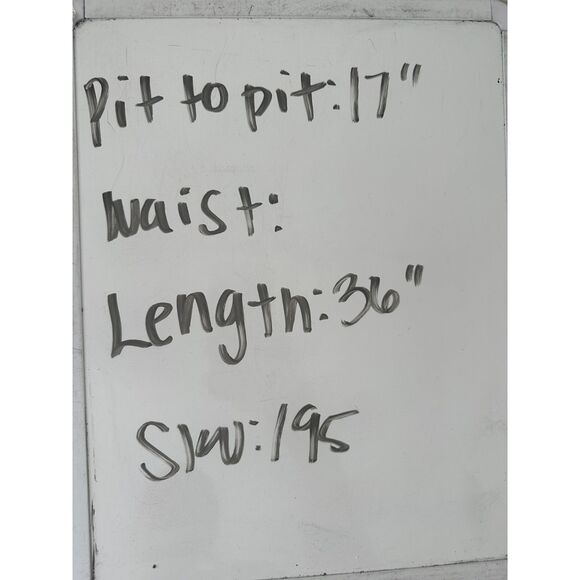 Pit to pit: 17"
Waist:
Length: 36"
SKU: 195